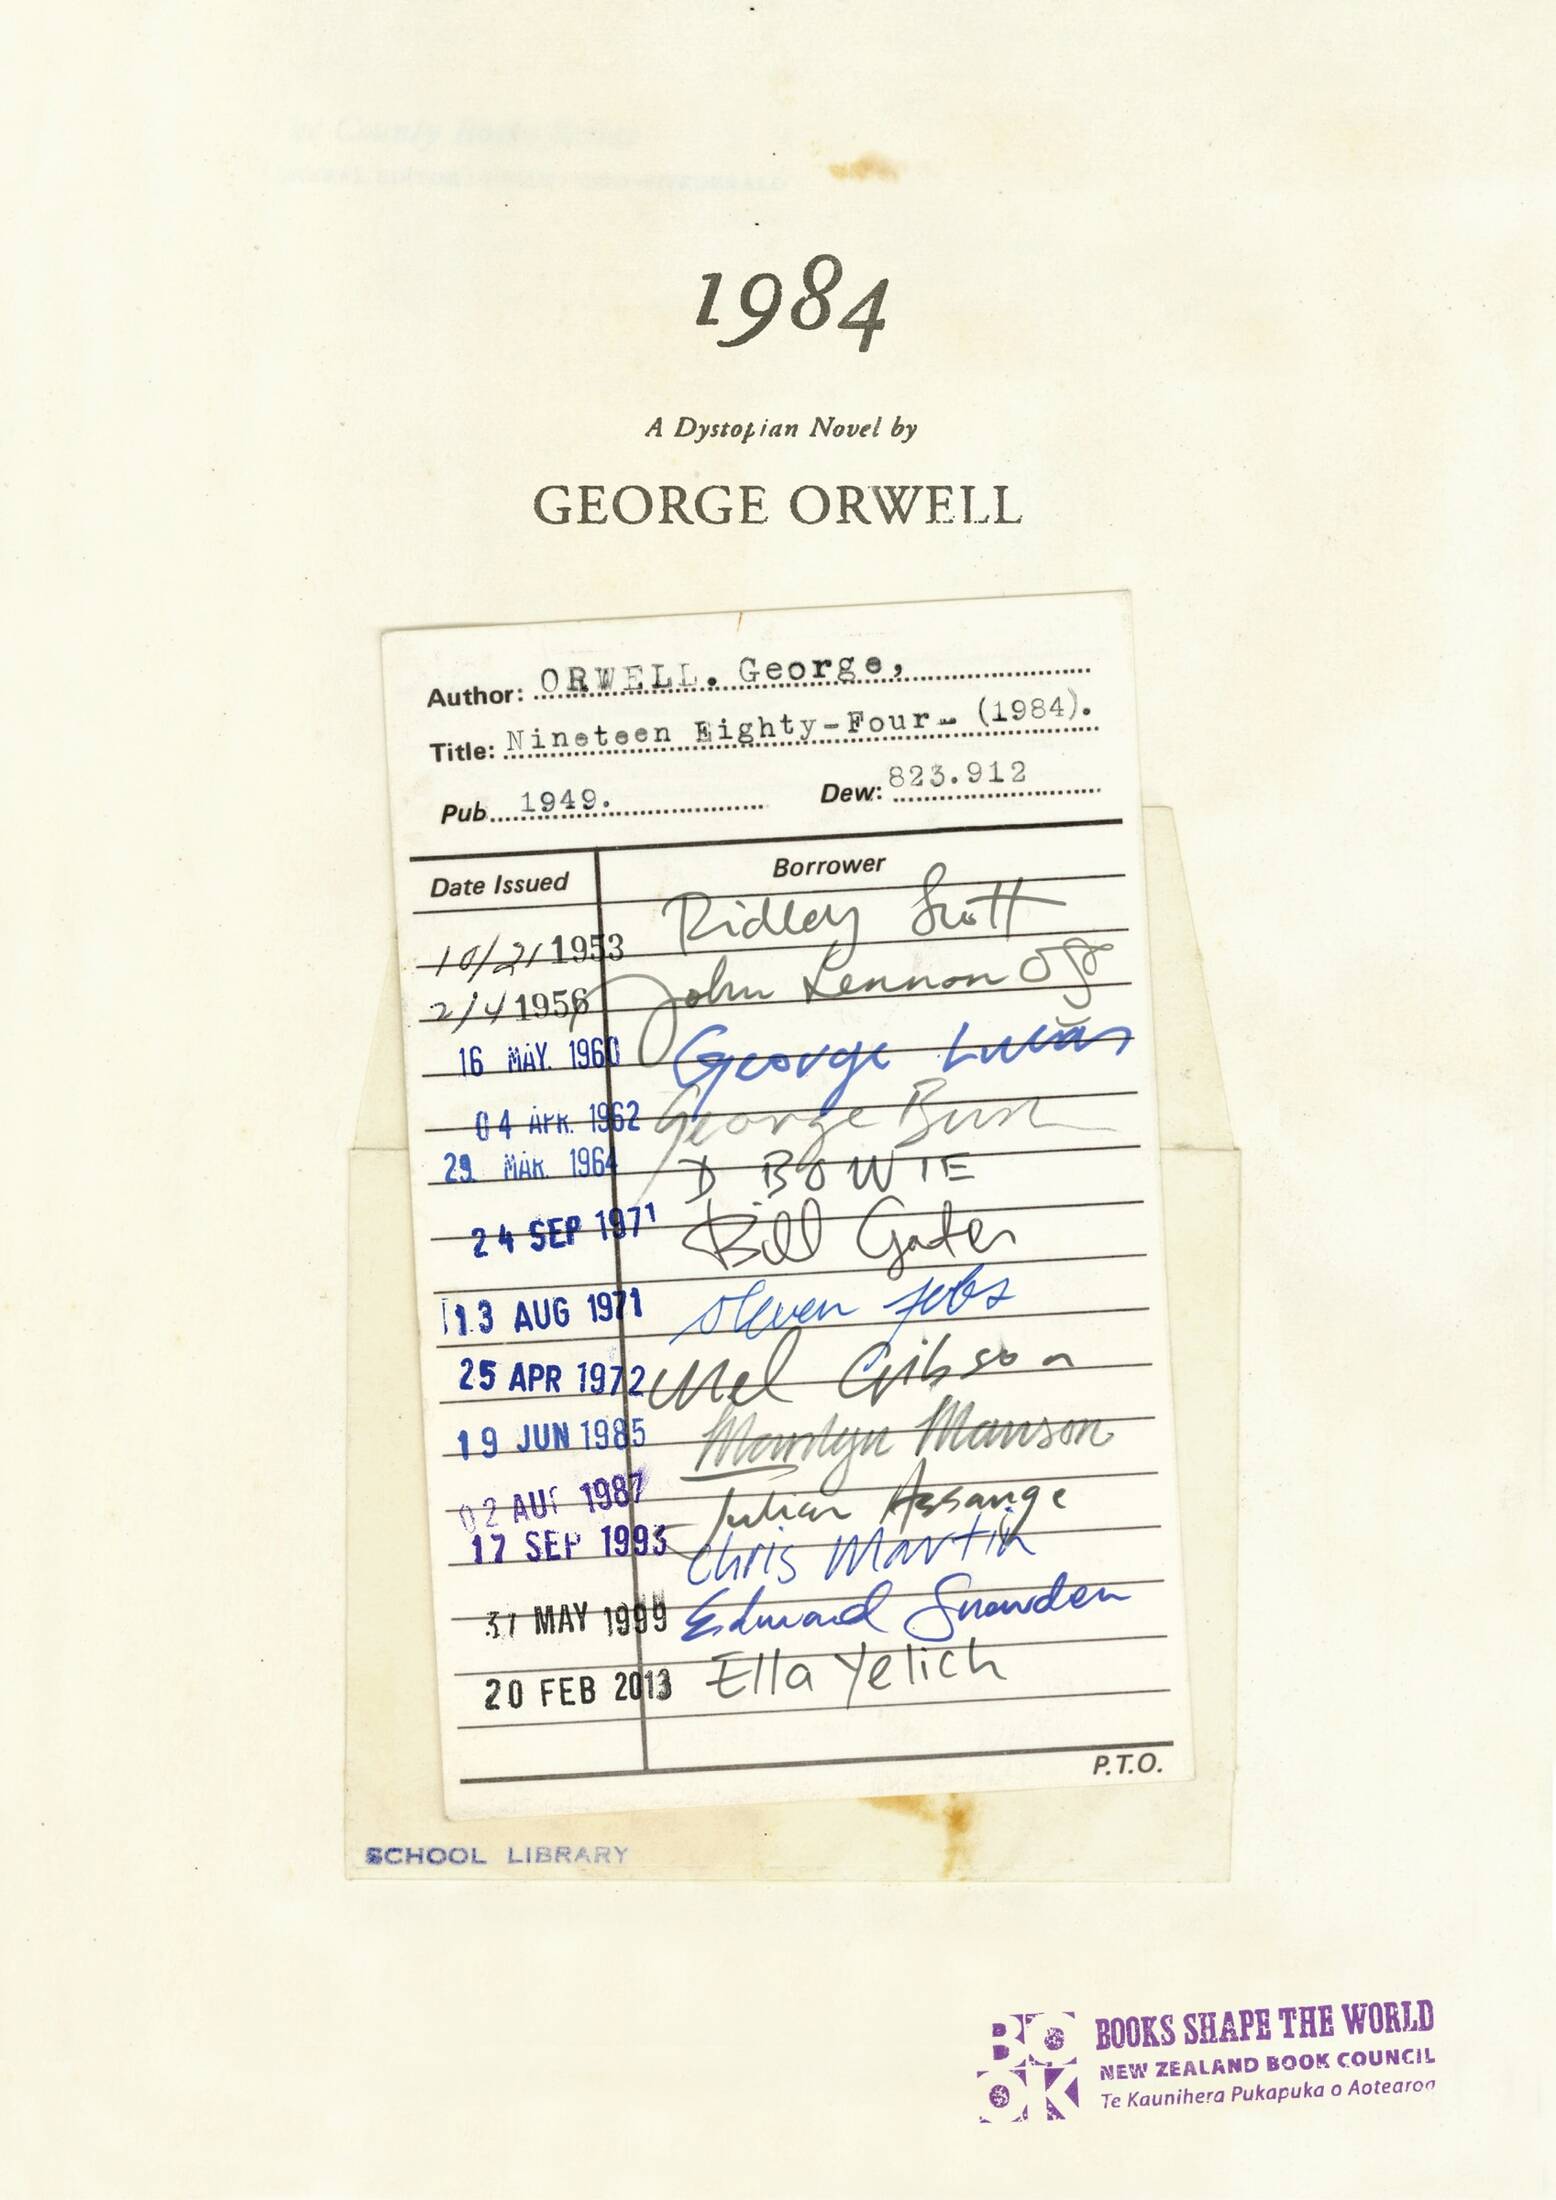 1984
A Dystopian Novel by
GEORGE ORWELL
Author: ORWELL. George,
Title: Nineteen Eighty-Four- (1984).
Pub. 1949. Dew: 823.912
Date Issued Borrower
10/21 1953 Ridley Scott
2/4 1956 John Lennon
16 MAY. 1960 George Lucas
04 APR. 1962 George Bush
29 MAR. 1964 D BOWIE
24 SEP 1971 Bill Gates
13 AUG 1971 Steven Jobs
25 APR 1972 Mel Gibson
19 JUN 1985 Marilyn Manson
02 AUG 1987 Julian Assange
17 SEP 1993 Chris Martin
31 MAY 1999 Edward Snowden
20 FEB 2013 Ella Yelich
P.T.O.
SCHOOL LIBRARY
BOOK
BOOKS SHAPE THE WORLD
NEW ZEALAND BOOK COUNCIL
Te Kaunihera Pukapuka o Aotearoa